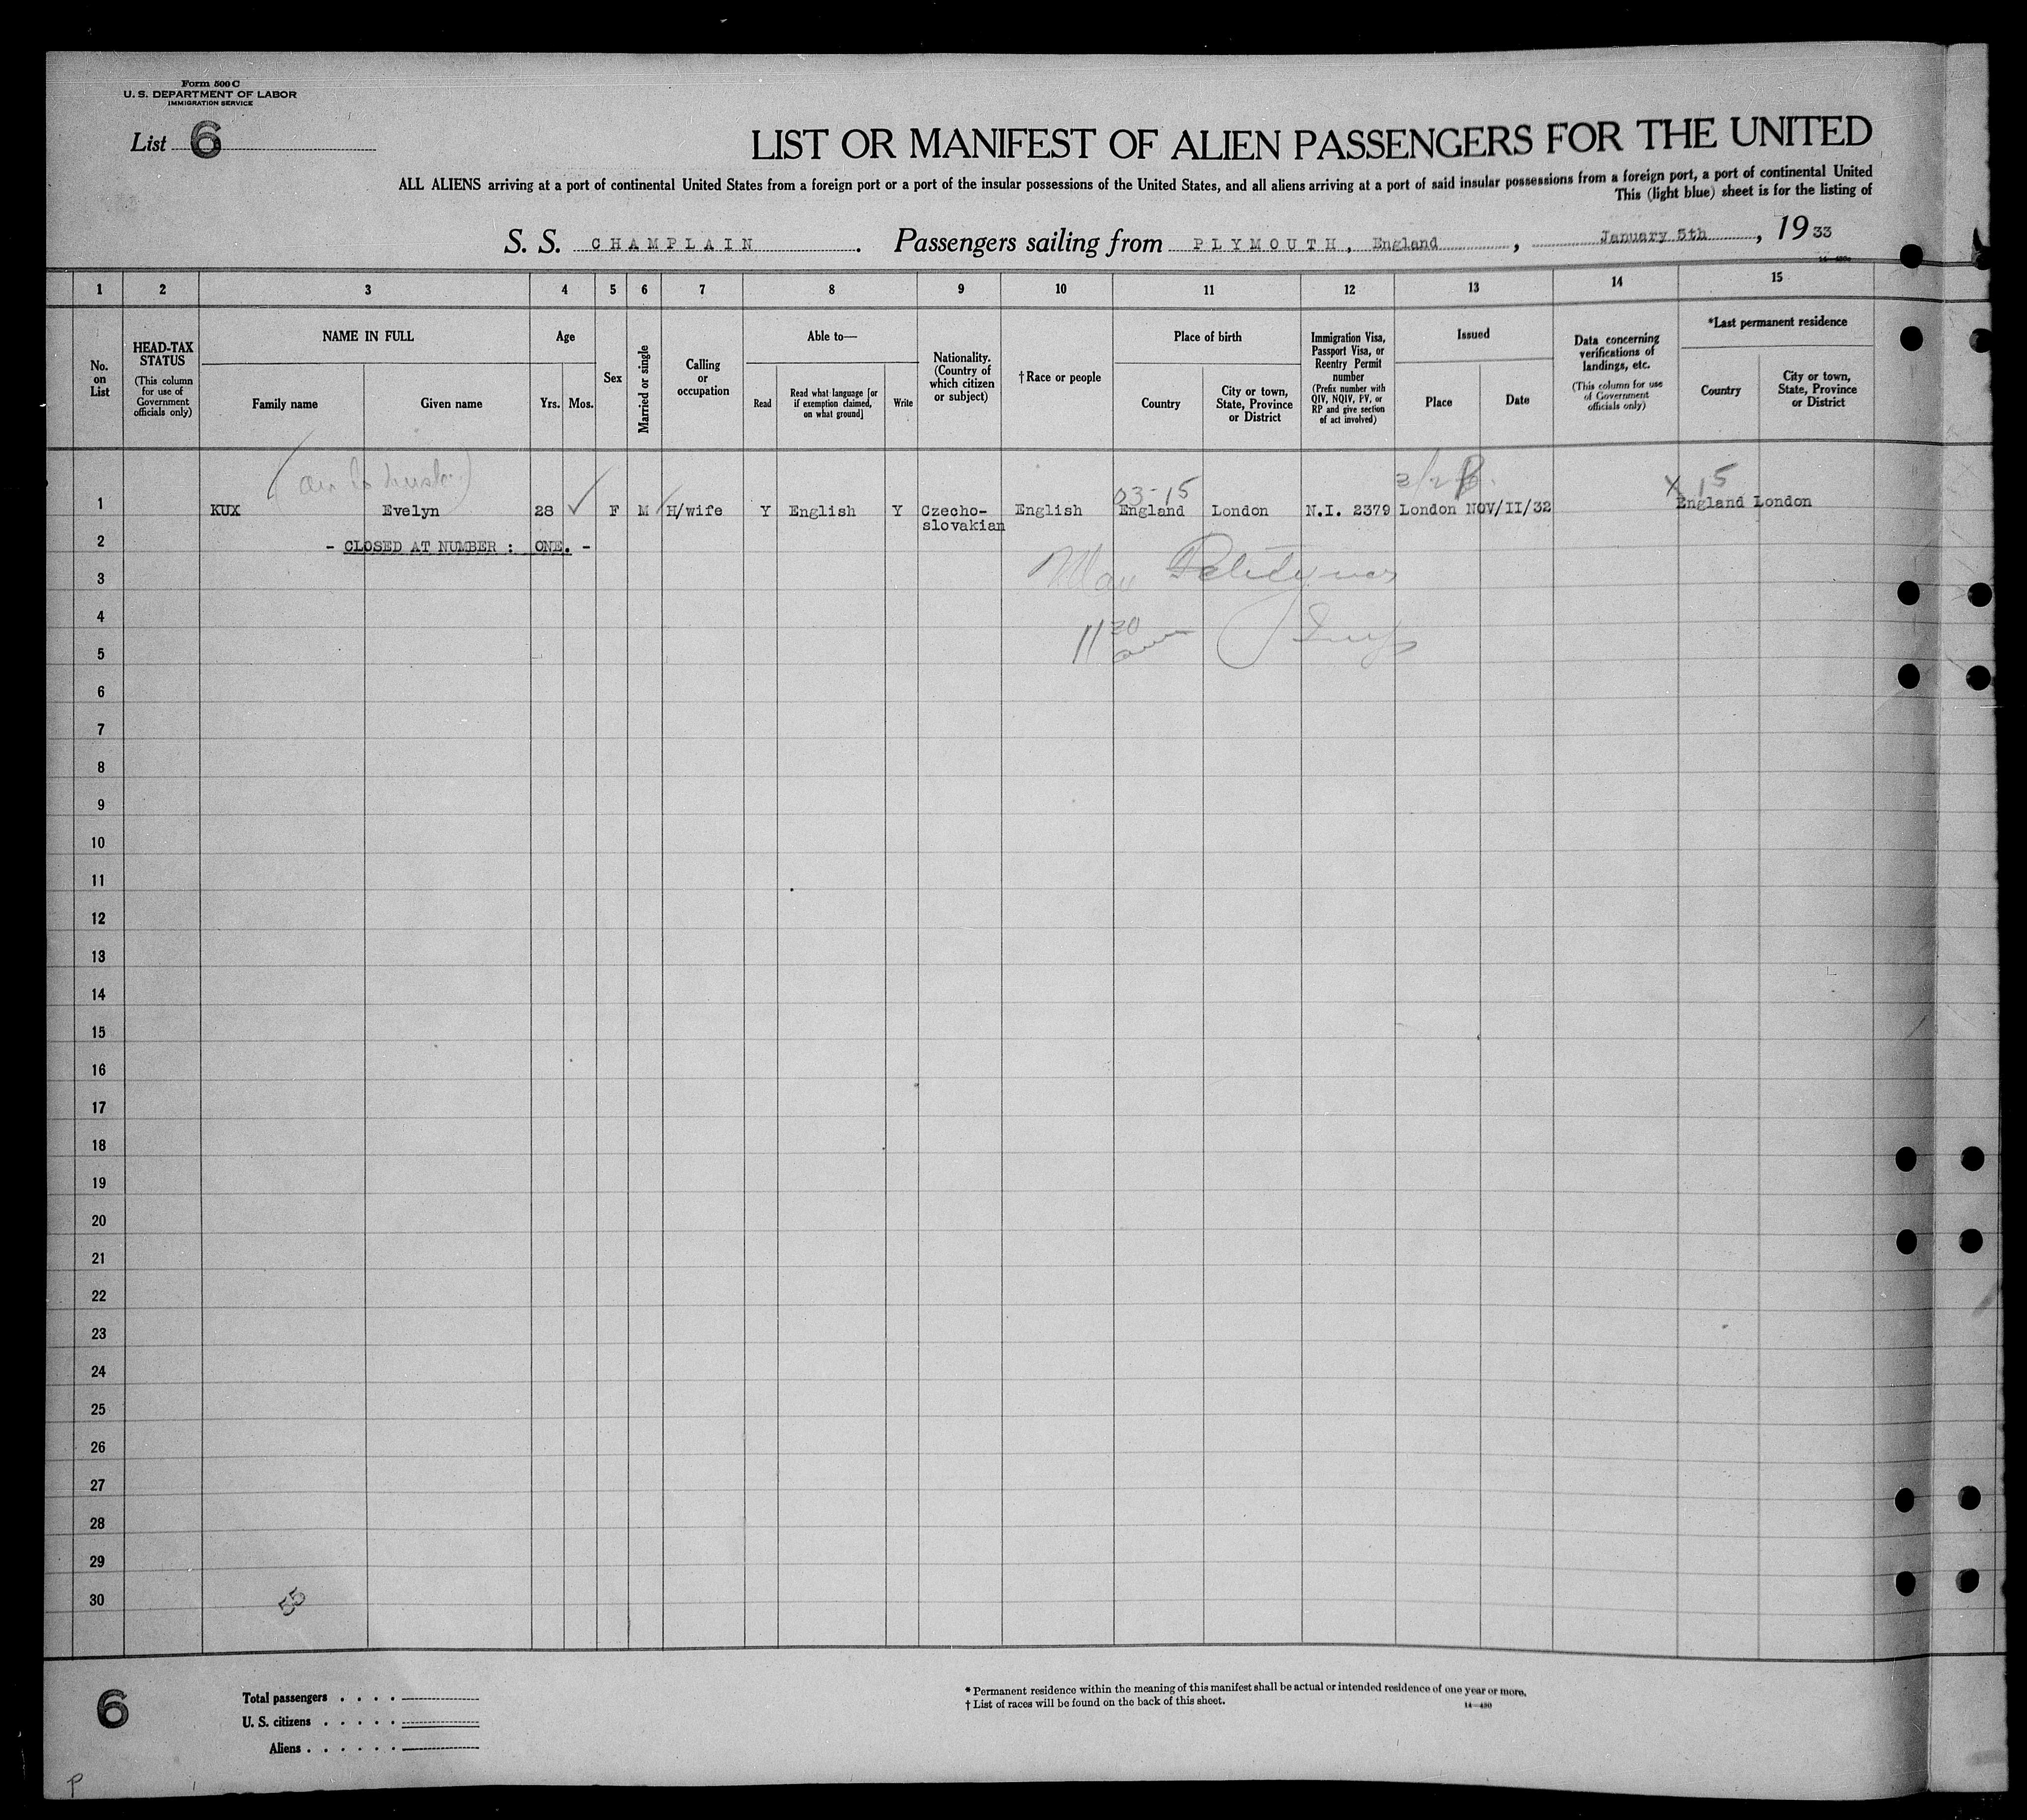 Form 500 C
U. S. DEPARTMENT OF LABOR
IMMIGRATION SERVICE
List 6
LIST OR MANIFEST OF ALIEN PASSENGERS FOR THE UNITED
ALL ALIENS arriving at a port of continental United States from a foreign port or a port of the insular possessions of the United States, and all aliens arriving at a port of said insular possessions from a foreign port, a port of continental United
This (light blue) sheet is for the listing of
S. S. CHAMPLAIN. Passengers sailing from PLYMOUTH, England, January 5th, 1933
14—480
1 2 3 4 5 6 7 8 9 10 11 12 13 14 15
No. on List
HEAD-TAX STATUS
(This column for use of Government officials only)
NAME IN FULL
Family name
Given name
Age
Yrs.
Mos.
Sex
Married or single
Calling or occupation
Able to—
Read
Read what language [or if exemption claimed, on what ground]
Write
Nationality. (Country of which citizen or subject)
† Race or people
Place of birth
Country
City or town, State, Province or District
Immigration Visa, Passport Visa, or Reentry Permit number
(Prefix number with QIV, NQIV, PV, or RP and give section of act involved)
Issued
Place
Date
Data concerning verifications of landings, etc.
(This column for use of Government officials only)
*Last permanent residence
Country
City or town, State, Province or District
03-15
X 15
1 KUX Evelyn 28 ✓ F M H/wife Y English Y Czecho-slovakian English England London N.I. 2379 London NOV/II/32 England London
2 - CLOSED AT NUMBER : ONE. -
3
4
11 30 am
5
6
7
8
9
10
11
12
13
14
15
16
17
18
19
20
21
22
23
24
25
26
27
28
29
30
55
6
Total passengers . . . .
U. S. citizens . . . . .
Aliens . . . . . .
* Permanent residence within the meaning of this manifest shall be actual or intended residence of one year or more.
† List of races will be found on the back of this sheet.
14—480
P